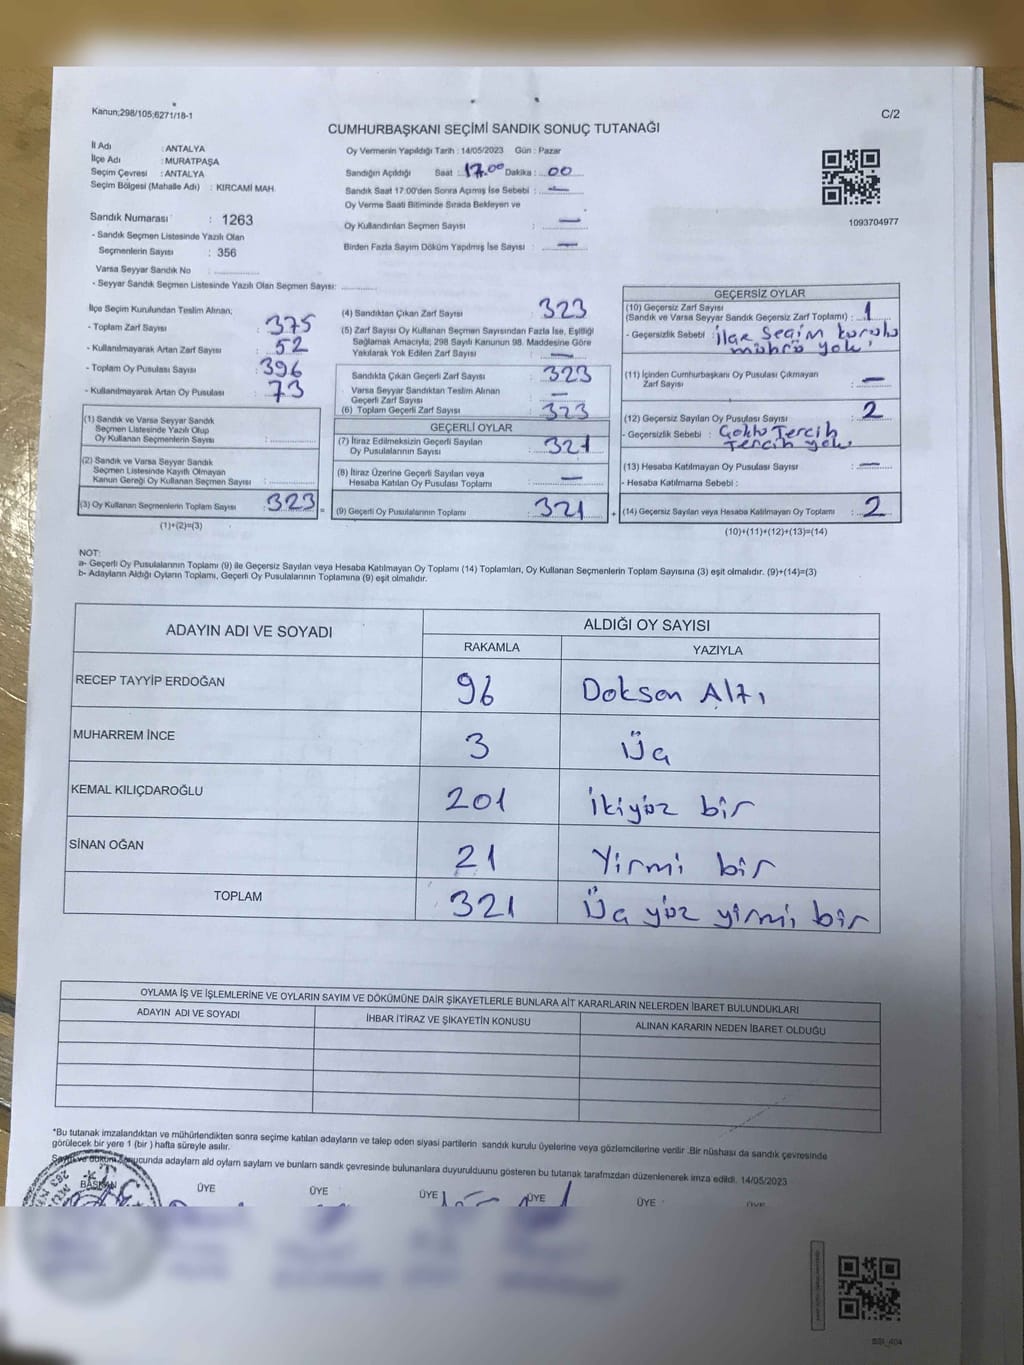 Kanun;298/105;6271/18-1
C/2
CUMHURBAŞKANI SEÇİMİ SANDIK SONUÇ TUTANAĞI
İl Adı : ANTALYA
İlçe Adı : MURATPAŞA
Seçim Çevresi : ANTALYA
Seçim Bölgesi (Mahalle Adı) : KIRCAMİ MAH.
Sandık Numarası : 1263
- Sandık Seçmen Listesinde Yazılı Olan
Seçmenlerin Sayısı : 356
Varsa Seyyar Sandık No :
- Seyyar Sandık Seçmen Listesinde Yazılı Olan Seçmen Sayısı:
Oy Vermenin Yapıldığı Tarih : 14/05/2023 Gün : Pazar
Sandığın Açıldığı Saat : 17.00 Dakika : 00
Sandık Saat 17:00'den Sonra Açımış İse Sebebi : —
Oy Verme Saati Bitiminde Sırada Bekleyen ve
Oy Kullandırılan Seçmen Sayısı : —
Birden Fazla Sayım Döküm Yapılmış İse Sayısı : —
1093704977
İlçe Seçim Kurulundan Teslim Alınan;
- Toplam Zarf Sayısı : 375
- Kullanılmayarak Artan Zarf Sayısı : 52
- Toplam Oy Pusulası Sayısı : 396
- Kullanılmayarak Artan Oy Pusulası : 73
(1) Sandık ve Varsa Seyyar Sandık
Seçmen Listesinde Yazılı Olup
Oy Kullanan Seçmenlerin Sayısı :
(2) Sandık ve Varsa Seyyar Sandık
Seçmen Listesinde Kayıtlı Olmayan
Kanun Gereği Oy Kullanan Seçmen Sayısı :
(3) Oy Kullanan Seçmenlerin Toplam Sayısı : 323 =
(1)+(2)=(3)
(4) Sandıktan Çıkan Zarf Sayısı : 323
(5) Zarf Sayısı Oy Kullanan Seçmen Sayısından Fazla İse, Eşitliği
Sağlamak Amacıyla; 298 Sayılı Kanunun 98. Maddesine Göre
Yakılarak Yok Edilen Zarf Sayısı : —
Sandıkta Çıkan Geçerli Zarf Sayısı : 323
Varsa Seyyar Sandıktan Teslim Alınan
Geçerli Zarf Sayısı : —
(6) Toplam Geçerli Zarf Sayısı : 323
GEÇERLİ OYLAR
(7) İtiraz Edilmeksizin Geçerli Sayılan
Oy Pusulalarının Sayısı : 321
(8) İtiraz Üzerine Geçerli Sayılan veya
Hesaba Katılan Oy Pusulası Toplamı : —
(9) Geçerli Oy Pusulalarının Toplamı : 321 +
GEÇERSİZ OYLAR
(10) Geçersiz Zarf Sayısı
(Sandık ve Varsa Seyyar Sandık Geçersiz Zarf Toplamı) : 1
- Geçersizlik Sebebi : İlçe Seçim kurulu
mührü yok.
(11) İçinden Cumhurbaşkanı Oy Pusulası Çıkmayan
Zarf Sayısı : —
(12) Geçersiz Sayılan Oy Pusulası Sayısı : 2
- Geçersizlik Sebebi : Çoklu Tercih
Tercih yok.
(13) Hesaba Katılmayan Oy Pusulası Sayısı : —
- Hesaba Katılmama Sebebi :
(14) Geçersiz Sayılan veya Hesaba Katılmayan Oy Toplamı : 2
(10)+(11)+(12)+(13)=(14)
NOT:
a- Geçerli Oy Pusulalarının Toplamı (9) ile Geçersiz Sayılan veya Hesaba Katılmayan Oy Toplamı (14) Toplamları, Oy Kullanan Seçmenlerin Toplam Sayısına (3) eşit olmalıdır. (9)+(14)=(3)
b- Adayların Aldığı Oyların Toplamı, Geçerli Oy Pusulalarının Toplamına (9) eşit olmalıdır.
ADAYIN ADI VE SOYADI
ALDIĞI OY SAYISI
RAKAMLA YAZIYLA
RECEP TAYYİP ERDOĞAN 96 Doksan Altı
MUHARREM İNCE 3 Üç
KEMAL KILIÇDAROĞLU 201 İkiyüz bir
SİNAN OĞAN 21 Yirmi bir
TOPLAM 321 Üç yüz yirmi bir
OYLAMA İŞ VE İŞLEMLERİNE VE OYLARIN SAYIM VE DÖKÜMÜNE DAİR ŞİKAYETLERLE BUNLARA AİT KARARLARIN NELERDEN İBARET BULUNDUKLARI
ADAYIN ADI VE SOYADI İHBAR İTİRAZ VE ŞİKAYETİN KONUSU ALINAN KARARIN NEDEN İBARET OLDUĞU
*Bu tutanak imzalandıktan ve mühürlendikten sonra seçime katılan adayların ve talep eden siyasi partilerin sandık kurulu üyelerine veya gözlemcilerine verilir .Bir nüshası da sandık çevresinde
görülecek bir yere 1 (bir ) hafta süreyle asılır.
Sayım ve döküm sonucunda adayların ald oyların sayları ve bunların sandk çevresinde bulunanlara duyurulduunu gösteren bu tutanak tarafmzdan düzenlenerek imza edildi. 14/05/2023
BAŞKAN ÜYE ÜYE ÜYE ÜYE ÜYE ÜYE